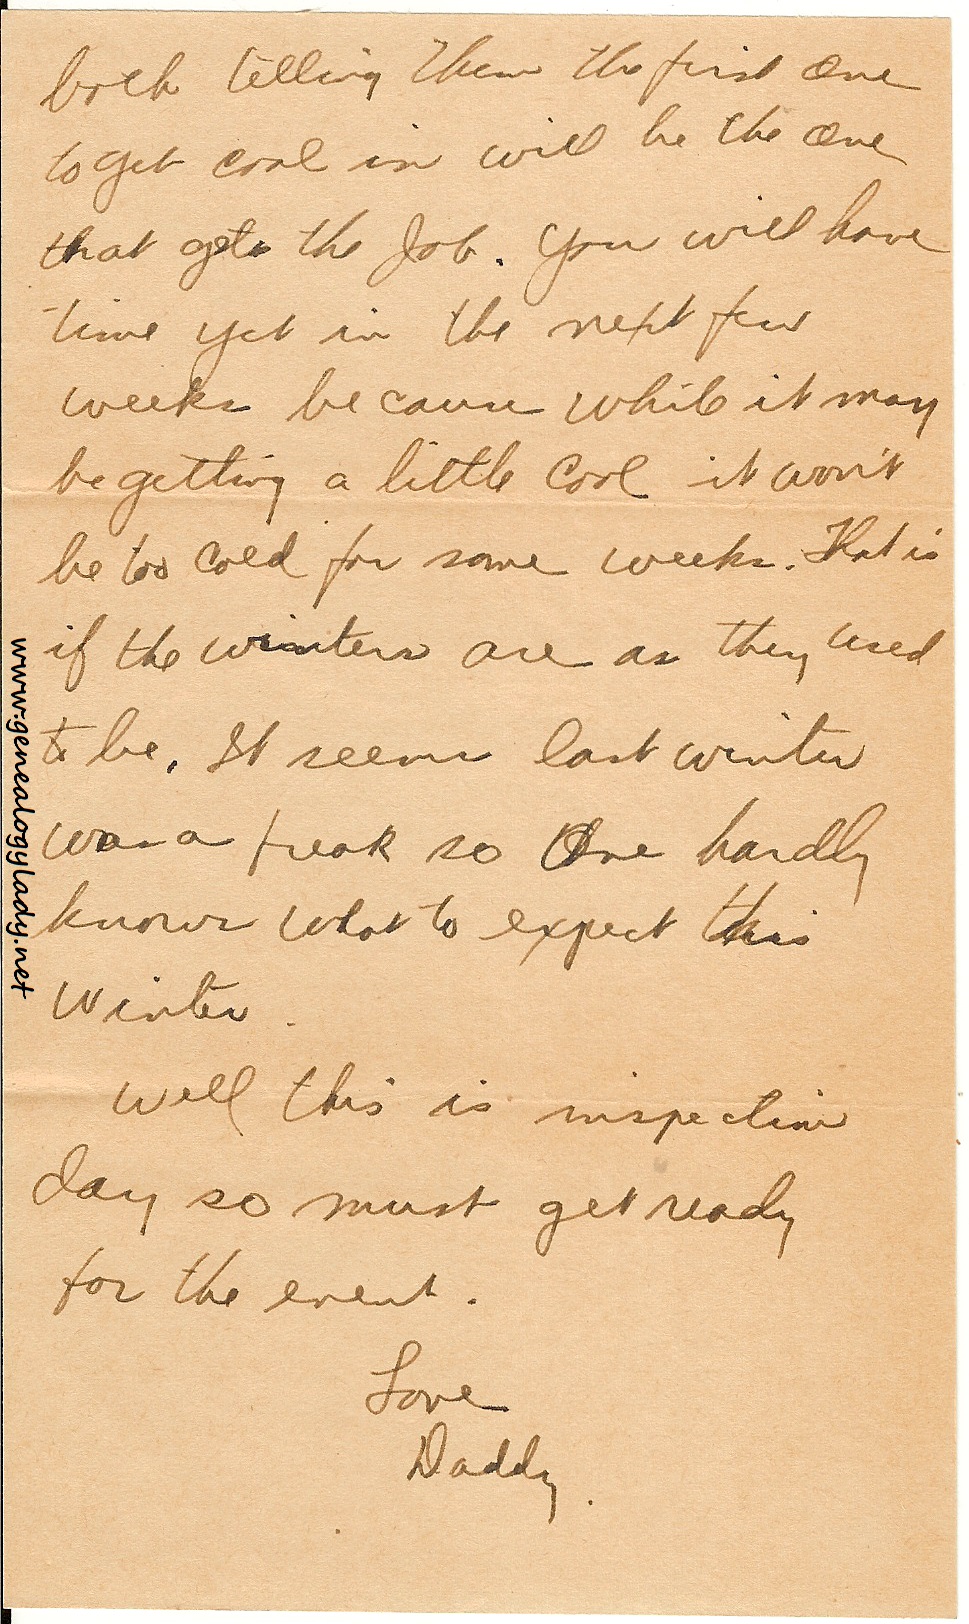 both telling them the first one
to get coal in will be the one
that gets the Job. You will have
time yet in the next few
weeks because while it may
be getting a little cool it won't
be too cold for some weeks. That is
if the winters are as they used
to be. It seems last winter
was a freak so One hardly
knows what to expect this
Winter.
Well this is inspection
day so must get ready
for the event.
Love
Daddy.
www.genealogylady.net